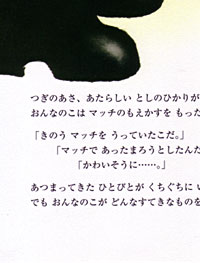 つぎのあさ、あたらしい としのひかりが
おんなのこは マッチのもえかすを もった
「きのう マッチを うっていたこだ。」
「マッチで あったまろうとしたんだ
「かわいそうに……。」
あつまってきた ひとびとが くちぐちに い
でも おんなのこが どんなすてきなものを